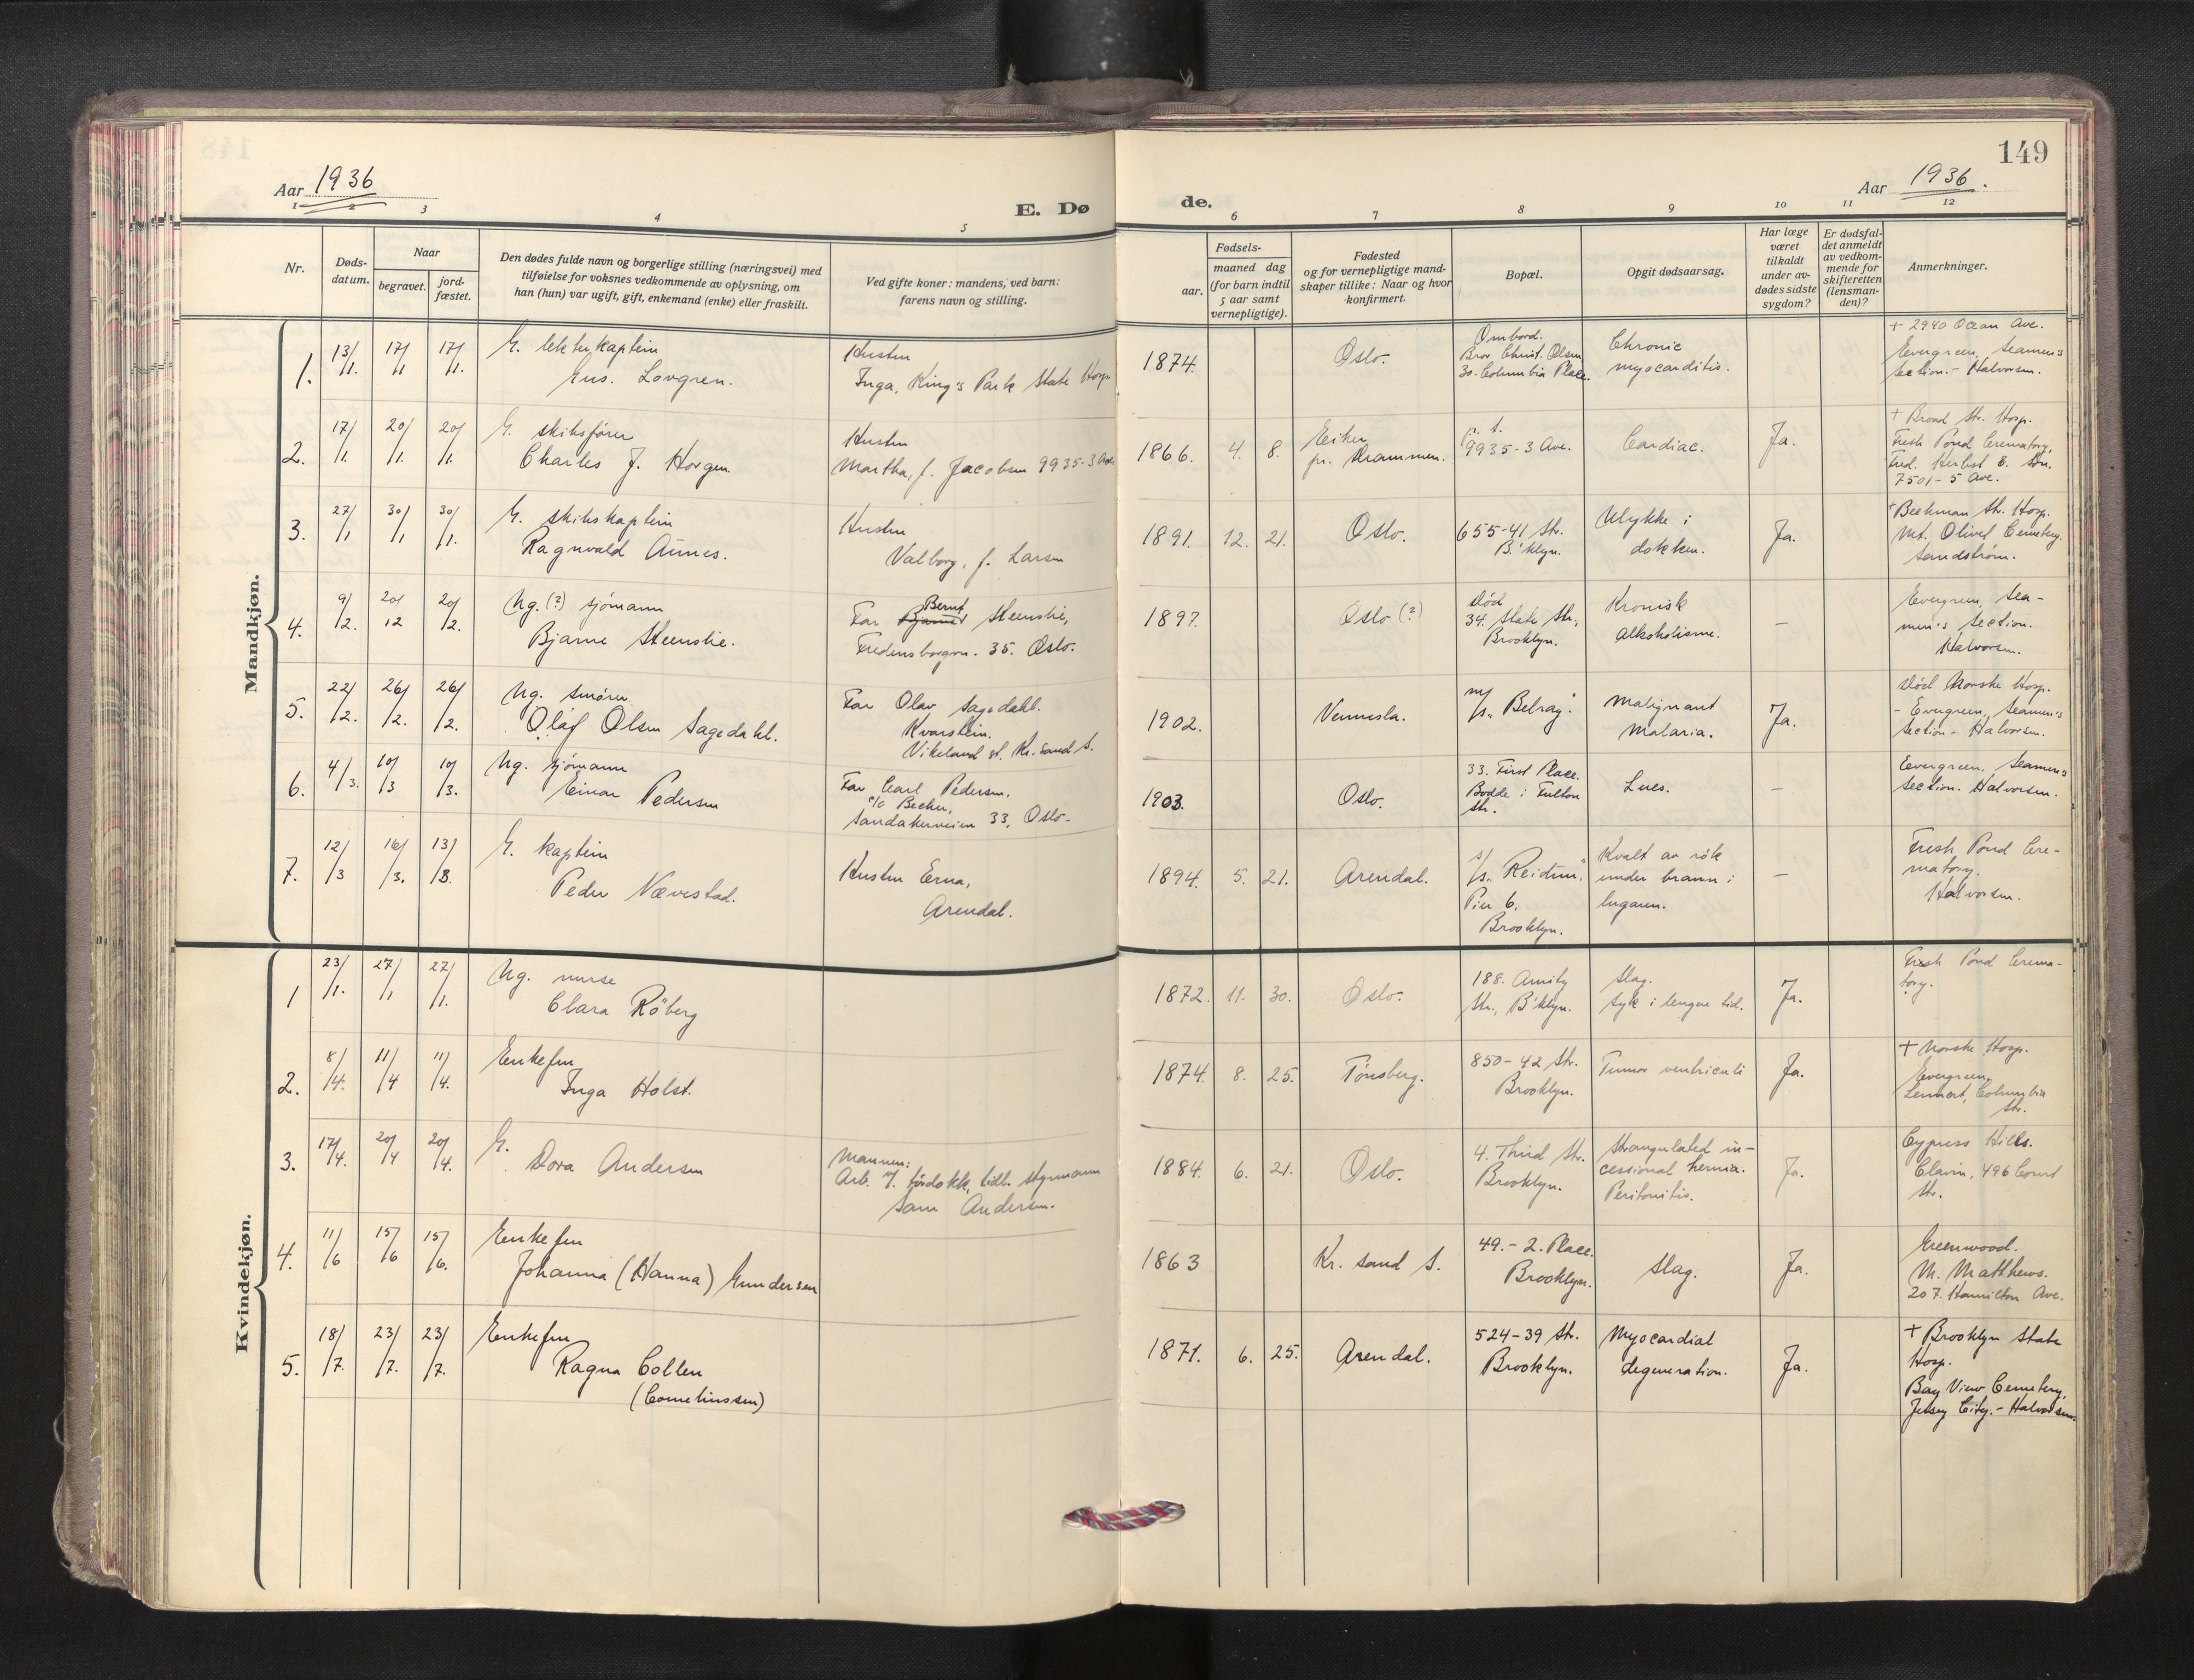 149
Aar 1936
Aar 1936.
E. Dø
de.
1 2 3 4 5 6 7 8 9 10 11 12
Nr.
Døds-
datum.
Naar
begravet.
jord-
fæstet.
Den dødes fulde navn og borgerlige stilling (næringsvei) med
tilføielse for voksnes vedkommende av oplysning, om
han (hun) var ugift, gift, enkemand (enke) eller fraskilt.
Ved gifte koner: mandens, ved barn:
farens navn og stilling.
Fødsels-
aar.
maaned dag
(for barn indtil
5 aar samt
vernepligtige).
Fødested
og for vernepligtige mand-
skaper tillike: Naar og hvor
konfirmert.
Bopæl.
Opgit dødsaarsag.
Har læge
været
tilkaldt
under av-
dødes sidste
sygdom?
Er dødsfal-
det anmeldt
av vedkom-
mende for
skifteretten
(lensman-
den)?
Anmerkninger.
Mandkjøn.
1. 13/1. 17/1 17/1.
G. lekterkaptein
Gus. Lovgren.
Hustru
Inga, King's Park State Hosp
1874.
Oslo.
Ombord.
Bror Christ. Olsen
30. Columbia Place.
Chronic
myocarditis.
+ 2940 Ocean Ave.
Evergreen, Seamen's
Section. - Halvorsen.
2. 17/1. 20/1. 20/1.
G. skibsfører
Charles J. Horgen
Hustru
Martha, f. Jacobsen 9935-3 Ave
1866. 4. 8.
Eiker
pr. Drammen.
9935-3 Ave.
Cardiac.
Ja.
+ Broad Str. Hosp.
Fresh Pond Crematory,
Fred. Herbst & Søn.
7501-5 Ave.
3. 27/1 30/1 30/1.
G. skibskaptein
Ragnvald Aunes.
Hustru
Valborg, f. Larsen
1891. 12. 21.
Oslo.
655-41 Str.
B'klyn.
Ulykke i
dokken.
Ja.
+ Beekman Str. Hosp.
Mt. Olivet Cemetery.
Sandstrøm.
4. 9/2. 20/2 20/2.
Ug. (?) sjømann
Bjarne Steenslie.
Bernt
Far Bjarne Steenslie,
Fredensborgvn. 35. Oslo.
1897.
Oslo (?)
død
34. State Str.,
Brooklyn.
Kronisk
alkoholisme.
–
Evergreen, Sea-
men's Section.
Halvorsen.
5. 22/2. 26/2. 26/2.
Ug. smører
Olaf Olsen Sagedahl.
Far Olav Sagedahl.
Kvarstein.
Vikeland st. Kr.sand S.
1902.
Vennesla.
m/s. "Belray".
Malignant
Malaria.
Ja.
død Norske Hosp.
- Evergreen, Seamen's
Section - Halvorsen.
6. 4/3. 10/3 10/3.
Ug. sjømann
Einar Pedersen
Far Carl Pedersen,
c/o Becker,
Sandakerveien 33, Oslo.
1903.
Oslo.
33. First Place.
Bodde i Fulton
Str.
Lues.
–
Evergreen, Seamen's
Section. Halvorsen.
7. 12/3 16/3. 13/3.
G. kaptein
Peder Nævestad.
Hustru Erna,
Arendal.
1894. 5. 21.
Arendal.
s/s. "Reidun",
Pier 6.
Brooklyn.
Kvalt av røk
under brann i
lugaren.
–
Fresh Pond Cre-
matory.
Halvorsen.
Kvindekjøn.
1 23/1. 27/1 27/1.
Ug. nurse
Clara Röberg
1872. 11. 30.
Oslo.
188. Amity
Str., B'klyn.
Slag.
Syk i lengere tid.
Ja.
Fresh Pond Crema-
tory.
2. 8/4. 11/4 11/4.
Enkefru
Inga Holst.
1874. 8. 25.
Tønsberg.
850-42 Str.
Brooklyn.
Tumor ventriculi
Ja.
+ Norske Hosp.
Evergreen,
Lennert, Columbia
Str.
3. 17/4. 20/4 20/4.
G.
Dora Andersen
Mannen:
Arb. v. tørdokk, tidl. styrmann
Sam Andersen.
1884. 6. 21.
Oslo.
4. Third Str.
Brooklyn.
Strangulated in-
cessional hernia.
Peritonitis.
Ja.
Cypress Hills.
Clavin, 496 Court
Str.
4. 11/6 15/6 15/6.
Enkefru
Johanna (Hanna) Gundersen
1863
Kr. sand S.
49. - 2. Place.
Brooklyn.
Slag.
Ja.
Greenwood.
M. Matthews.
207. Hamilton Ave.
5. 18/7. 23/7. 23/7.
Enkefru
Ragna Collen
(Corneliussen)
1871. 6. 25.
Arendal.
524-39 Str.
Brooklyn.
Myocardial
degeneration.
Ja.
+ Brooklyn State
Hosp.
Bay View Cemetery,
Jersey City. - Halvorsen.